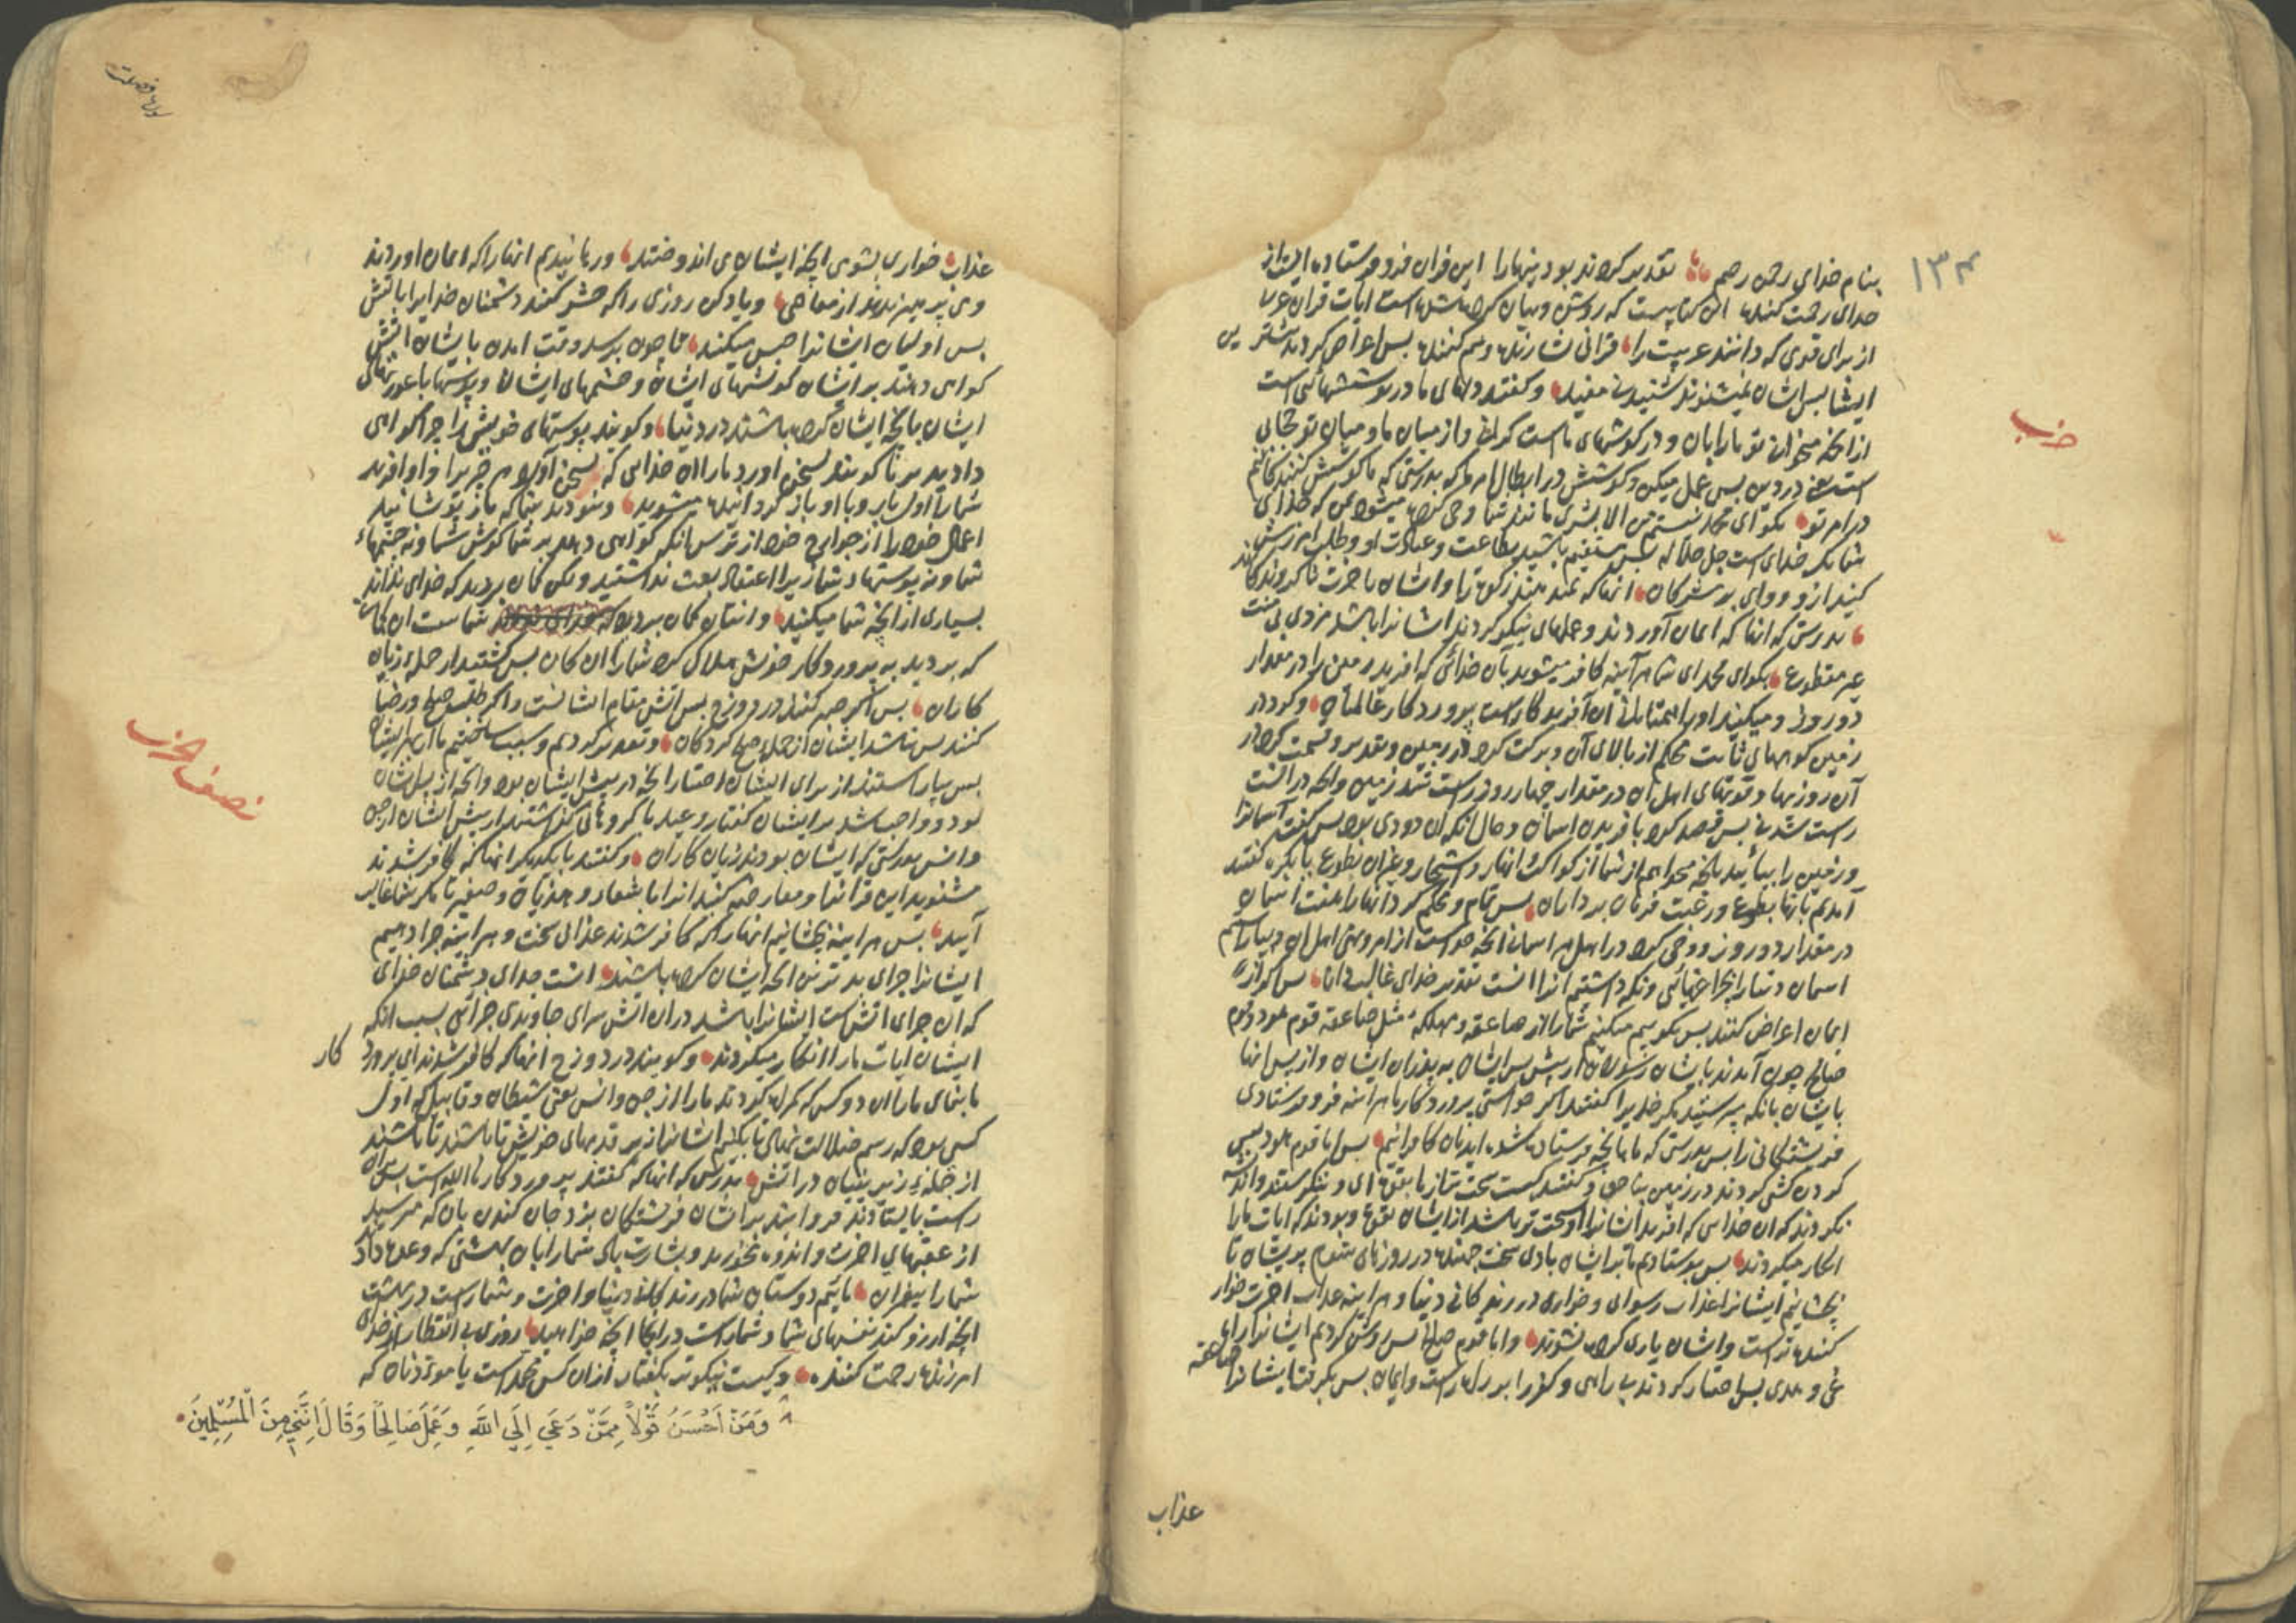 ۱۳۴
بنام خدای رحمن رحیم تقدیر کرده‌اند بودنیها را این قران فرو فرستاده ایست از
خدای رحمت کننده این کتابیست که روشن و بیان کرده شده است ایات قران عربی
از برای قومی که دانند عربیت را قرانی بشارت دهنده و بیم کننده پس اعراض کردند بیشتریں
ایشان پس ایشان نمیشنوند شنیدنی مفید و گفتند دلهای ما در پوششهائی است
از انچه میخوانی تو ما را بان و در کوشهای ما است کرانی و از میان ما و میان تو حجابی
است در دین پس عمل میکن و کوشش در ابطال امر ما که بدرستی که ما کوشش کنندکانیم
در امر تو بکو ای محمد نیستم من الا بشری مانند شما وحی کرده میشود بمن که خدای
شما یک خدای است جل جلاله پس مستقیم باشید بطاعت و عبادت او و طلب امرزش
کنید ازو و وای بر مشرکان انها که نمیدهند زکوة را و ایشان باخرت ناکروندکانند
بدرستی که انها که ایمان آوردند و عملهای نیکو کردند ایشانرا باشد مزدی بی منت
غیر مقطوع بکو ای محمد ای شما هر آینه کافر میشوید بآن خدائی که افرید زمین را در مقدار
دو روز و میکنید او را همتایان آن آفریدکار است پروردکار عالمیان و کرد در
زمین کوههای ثابت محکم از بالای آن و برکت کرد در زمین و تقدیر و قسمت کرد در
آن روزیها و قوتهای اهل آن در مقدار چهار روز راست شد زمین و انچه در انست
راست شدنی پس قصد کرد بافریدن اسمان و حال انکه آن دودی بود پس گفت آسمانرا
و زمین را بیائید بانچه میخواهم از شما از کواکب و انهار و اشجار و غیران بطوع یا بکره گفتند
آمدیم بانها بطوع و رغبت فرمان برداران پس تمام و محکم کردانها را هفت اسمان
در مقدار دو روز و وحی کرد در اهل هر اسمان انچه خواست از امر و نهی اهل ان و بیاراستیم
اسمان دنیا را بچراغهائی و نکه داشتیم انرا انست تقدیر خدای غالب دانا پس اکر از
ایمان اعراض کنند پس بکو بیم میکنیم شما را از صاعقه و مهلکه مثل صاعقه قوم هود و قوم
صالح چون آمدند بایشان رسولان از پیش ایشان به پدران ایشان و از پس انها
بایشان بانکه مپرستید مکر خدایرا گفتند اکر خواستی پروردکار ما هر اینه فرو فرستادی
فریشتکانی را پس بدرستی که ما بانچه فرستاده شده‌اید بان کافرانیم پس اما قوم هود پس
کردن کشی کردند در زمین بناحق و گفتند کیست سخت تر از ما بقوة ای و ننکرستند و اندیشه
نکردند که ان خدایی که افرید ایشانرا او سخت تر باشد از ایشان بقوة و بودند که ایات ما را
انکار میکردند پس بفرستادیم ما بر ایشان بادی سخت جهنده در روزهای شوم بریشان تا
بچشانیم ایشانرا عذاب رسوایی و خواری در زندکانی دنیا و هر اینه عذاب اخرت خوار
کننده تر است و ایشان یاری کرده نشوند و اما قوم صالح پس روشن کردیم ایشانرا راه
غی و هدی پس اختیار کردند بی راهی و کفر را بر راه راست و ایمان پس بکرفت ایشانرا صاعقه
عذاب
حزب
سوره فصلت
عذاب خواری بشومی انچه ایشان می اندوختند و رهانیدیم انها را که ایمان اوردند
و می پرهیزیدند از معاصی و یاد کن روزی را که حشر کنند دشمنان خدایرا باتش
پس اولیان ایشانرا حبس میکنند تا چون برسد وقت امدن بایشان اتش
کواهی دهند بر ایشان کوشهای ایشان و چشمهای ایشان و پوستها یا عورتهای
ایشان بانچه ایشان کرده باشند در دنیا و کویند پوستهای خویش را چرا کواهی
دادید بر ما کویند بسخن اورد ما را ان خدایی که بسخن آورد هر چیز را و او افرید
شما را اول بار و با او باز کردانیده میشوید و نبودید شما که باز پوشانید
اعمال خود را از جوارح خود از ترس انکه کواهی دهد بر شما کوش شما و نه چشمهاء
شما و نه پوستها شما زیرا اعتقاد بعث نداشتید و لکن کمان بردید که خدای نداند
بسیاری از انچه شما میکنید و انتان کمان بردید که خدای نداند شماست ان کمان
که بردید به پروردکار خویش هلاک کرد شما را ان کمان پس کشتید از جمله زیان
کاران پس اکر صبر کنند در دوزخ پس اتش مقام ایشانست و اکر طلب صلح و رضا
کنند پس نباشد ایشان از جمله صلح کردکان و تقدیر کردیم و سبب ساختیم ما از بهر ایشان
پس بیاراستند از برای ایشان اختیار انچه در پیش ایشان بود و انچه از پس ایشان
بود و واجب شد بر ایشان گفتار وعید با کروهائی که گذشتند از پیش ایشان از جن
و انس بدرستی که ایشان بودند زیان کاران و گفتند با یکدیکر انها که کافر شدند
مشنوید این قرانرا و معارضه کنید انرا با شعار و هذیان و صفیر تا مکر شما غالب
آیید پس هر اینه بچشانیم انها را که کافر شدند عذابی سخت و هر اینه جزا دهیم
ایشانرا جزای بدترین انچه ایشان کرده باشند انست جزای دشمنان خدای
که ان جزای اتش است ایشانرا باشد دران اتش سرای جاویدی جزائی بسبب انکه
ایشان ایات ما را انکار میکردند و کویند در دوزخ انها که کافر شدند ای پرورد کار
ما بنمای ما را ان دو کس که کمراه کردند ما را از جن و انس یعنی شیطان و قابیل که اول
کسی بود که رسم ضلالت نهاد تا بکنیم ایشانرا زیر قدمهای خویش تا باشند تا باشند
از جمله زیرینیان در اتش بدرستی که انها که گفتند پروردکار ما الله است پس بران
راست بایستادند فرو ایند بر ایشان فرشتکان نزد جان کندن بان که مترسید
از عقبهای اخرت و اندوه مخورید و بشارت باد شما را بان بهشتی که وعده داد
شما را پیغمبران مائیم دوستان شما در زندکانی دنیا و اخرت و شما راست در بهشت
انچه ارزو کند نفسهای شما و شما راست در انجا انچه خواهید روزی بی انتظار از خدای
امرزنده رحمت کننده و کیست نیکوتر بکفتار ازان کس محمد است یا موذنان که
وَمَنْ اَحْسَنُ قَوْلًا مِمَّنْ دَعَي اِلَي اللَّهِ وَعَمِلَ صَالِحًا وَقَالَ اِنَّنِي مِنَ الْمُسْلِمِينَ
نصف الحزب